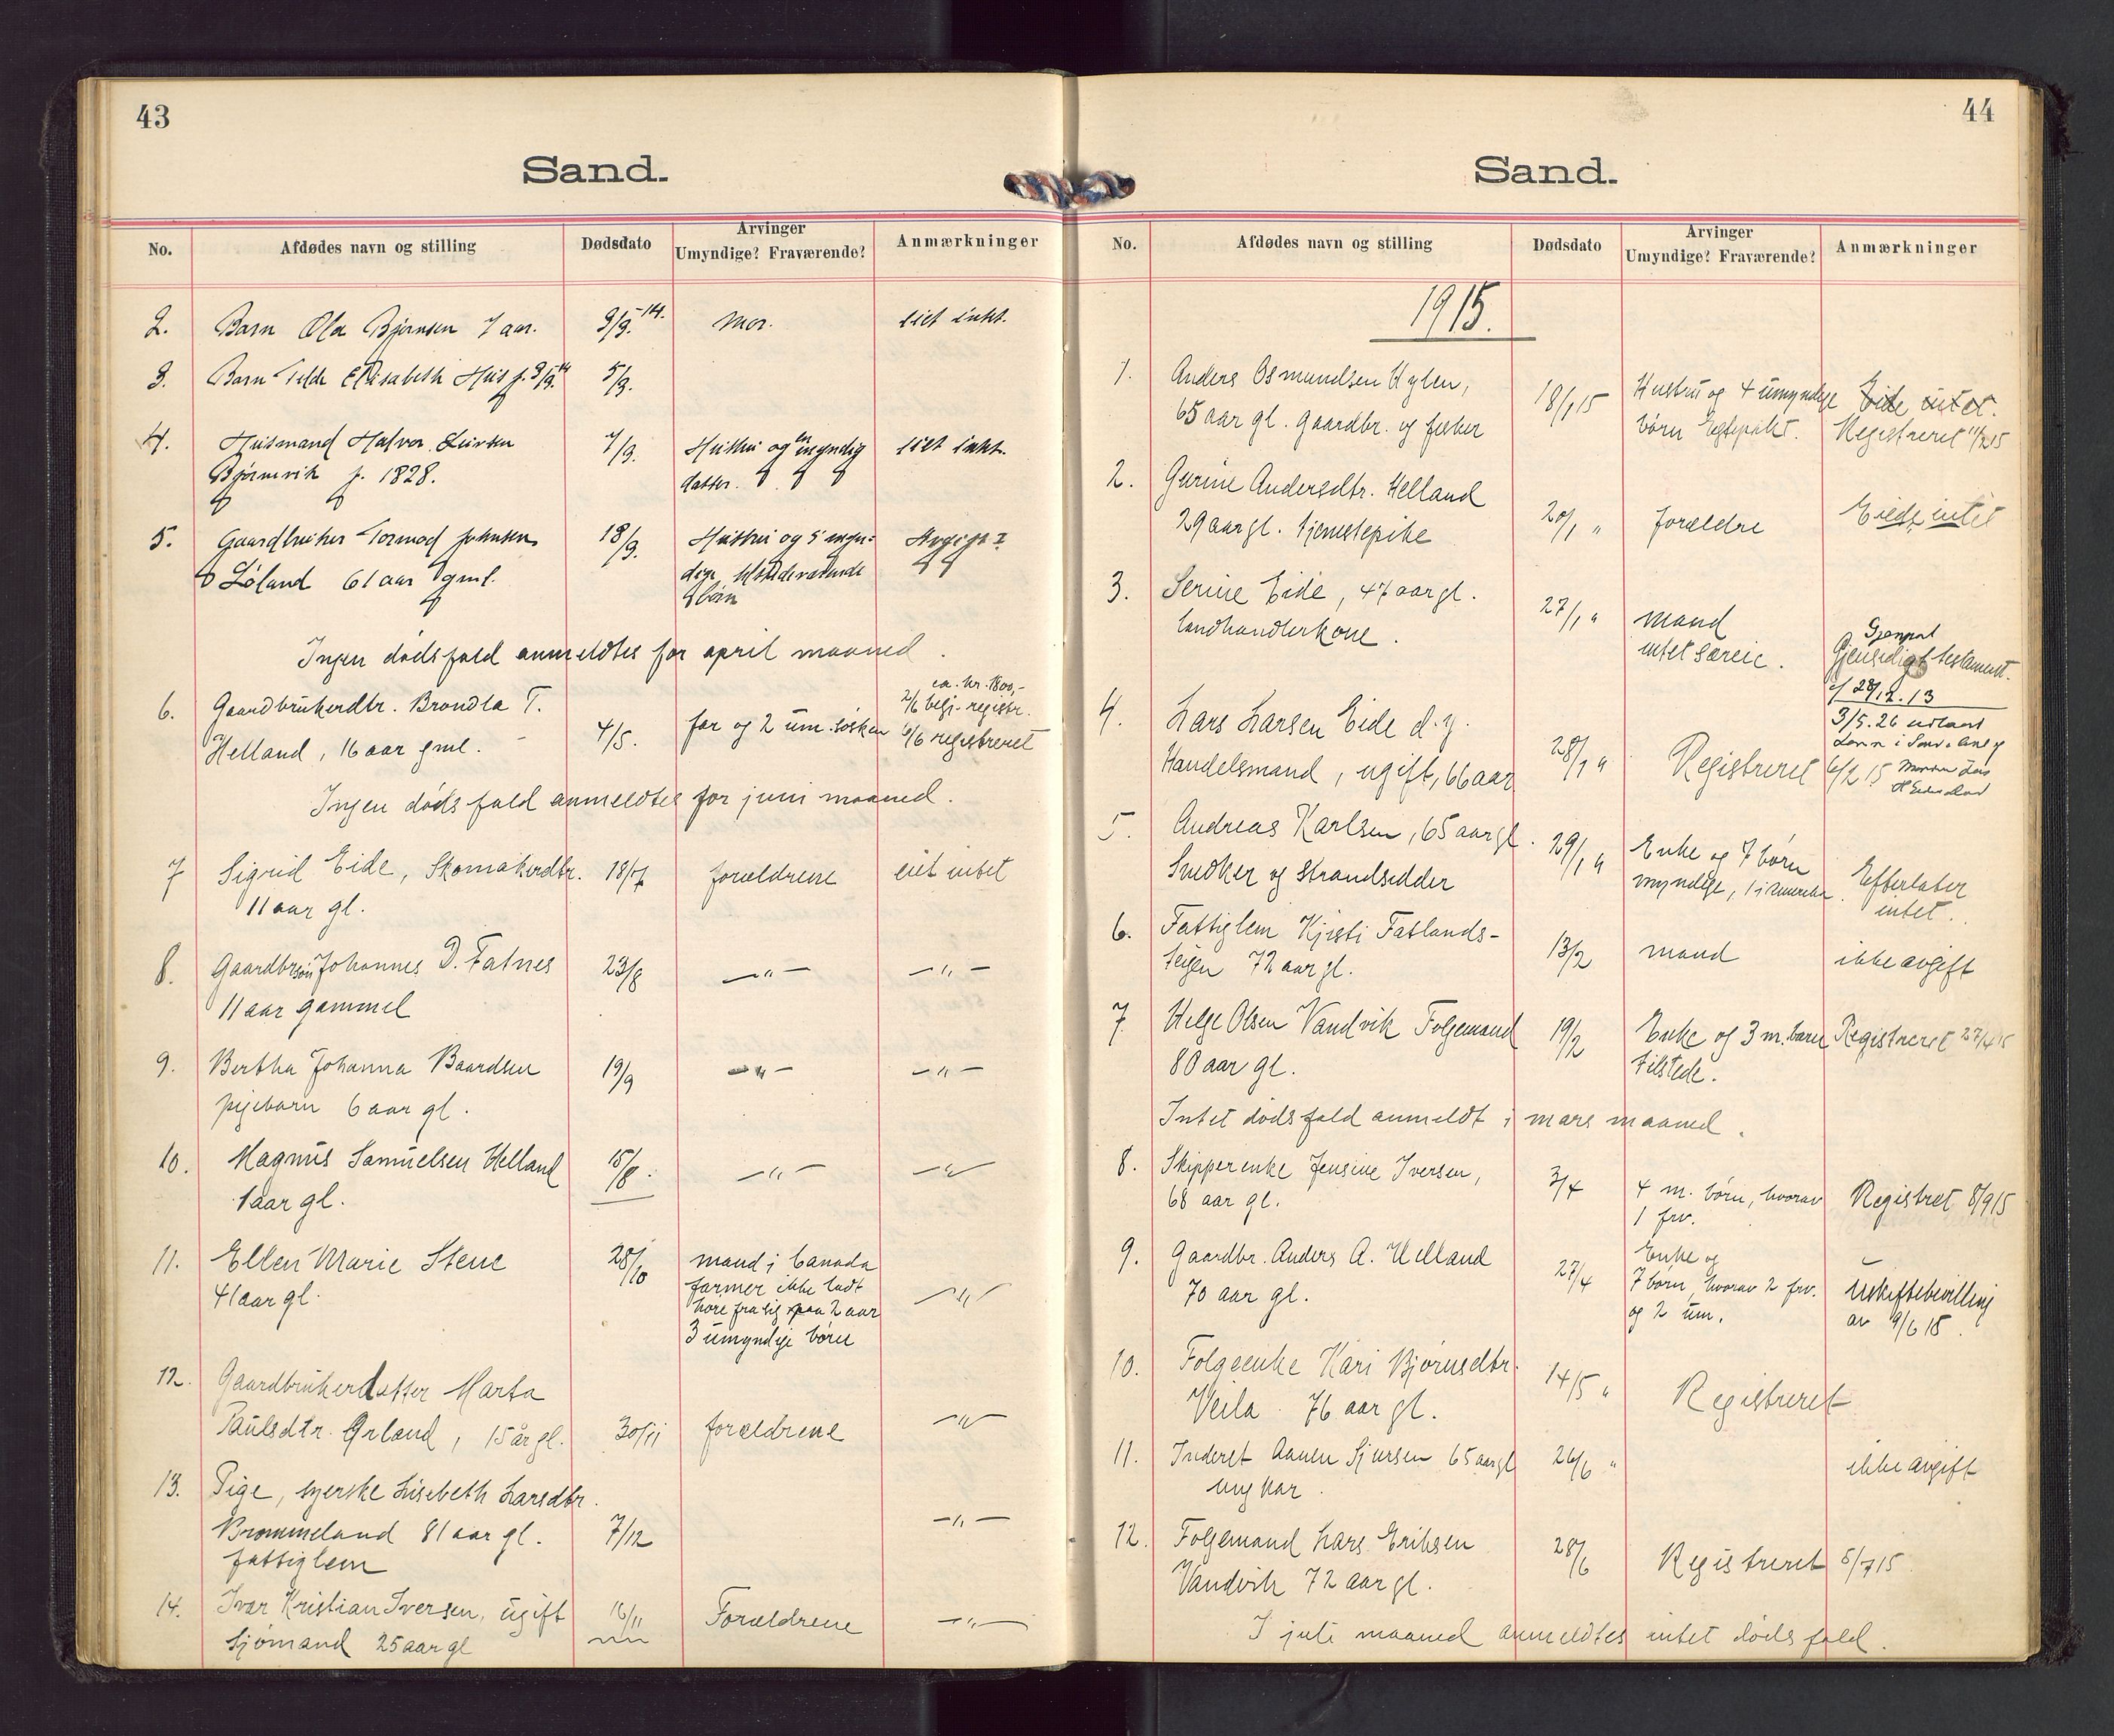 43
Sand.
No. Afdødes navn og stilling Dødsdato Arvinger Umyndige? Fraværende? Anmærkninger
2. Barn Ola Bjørnsen 7 aar. 3/3.-14. Mor. eiet intet.
3. Barn Elisabeth Hus f. 3/3.14 5/3.
4. Husmand Halvor 7/3. Hustru og en myndig eiet intet.
Bjørnevik f. 1828. datter.
5. Gaardbruker Tormod Johnsen 18/3. Hustru og 5 myn-
Løland 61 aar gml. dige
børn
Ingen dødsfald anmeldtes for april maaned.
6. Gaardbrukerdtr. Brondla T. 4/5. far og 2 um. søsken ca. kr. 1800,-
Helland, 16 aar gml. 2/6 begj. registr.
6/6 registreret
Ingen dødsfald anmeldtes for juni maaned.
7 Sigrid Eide, Skomakerdtr. 18/7 forældrene eiet intet
11 aar gl.
8. Gaardbrsøn Johannes D. Fatnes 23/8 —"— —"—
11 aar gammel
9. Bertha Johanna Baardsen 19/9 —"— —"—
pigebarn 6 aar gl.
10. Magnus Samuelsen Helland 15/8. —"— —"—
1 aar gl.
11. Ellen Marie Stene 28/10 mand i Canada
41 aar gl. farmer ikke ladt
høre fra sig paa 2 aar —"—
3 umyndige børn
12. Gaardbrukerdatter Marta
Paulsdtr. Ørland, 15 år gl. 30/11 forældrene —"—
13. Pige, syerske Lisebeth Larsdtr.
Brommeland 81 aar gl. 7/12 —"—
fattiglem
14. Ivar Kristian Iversen, ugift 16/11 Forældrene —"—
Sjømand 25 aar gl
44
Sand.
No. Afdødes navn og stilling Dødsdato Arvinger Umyndige? Fraværende? Anmærkninger
1915.
1. Anders Osmundsen Hylen, 18/1 15 Hustru og 4 umyndige Eide intet.
65 aar gl. gaardbr. og fisker børn Registreret 11/2 15
2. Gurine Andersdtr. Helland
29 aar gl. tjenestepike 20/1 " forældre Eiede intet
3. Serine Eide, 47 aar gl. 27/1 " mand
landhandlerkone. intet særeie. Gjenpat
Gjensidigt testament.
af 28/12.13
4. Lars Larsen Eide d.y. 28/1 " Registreret 3/5.26 utlaant
Handelsmand, ugift, 66 aar 6/2 15
5. Andreas Karlsen, 65 aar gl. 29/1 " Enke og 7 børn
Snedker og strandsidder myndige, 1 i Amerika. Efterlater
intet.
6. Fattiglem Kjisti Fatlands- 13/2 mand ikke avgift
teigen 72 aar gl.
7 Helge Olsen Vandvik Folgemand 19/2 Enke og 3 m. barn Registreret 27/4 15
80 aar gl. tilstede.
Intet dødsfald anmeldt i mars maaned.
8. Skipperenke Jensine Iversen, 3/4 4 m. børn, hvorav Registret 8/9 15
68 aar gl. 1 frv.
9. Gaardbr. Anders A. Helland 27/4 Enke og
70 aar gl. 7 børn, hvorav 2 frv. Uskiftebevilling
og 2 um. av 9/6 15.
10. Folgeenke Kari Bjørnsdtr. 14/5 " Registreret
Veila 76 aar gl.
11. Inderst Aanen Sjursen 65 aar gl 26/6 " ikke avgift
ungkar.
12. Folgemand Lars Eriksen 28/6 Registreret 5/7 15
Vandvik 72 aar gl.
I juli maaned anmeldtes intet dødsfald.